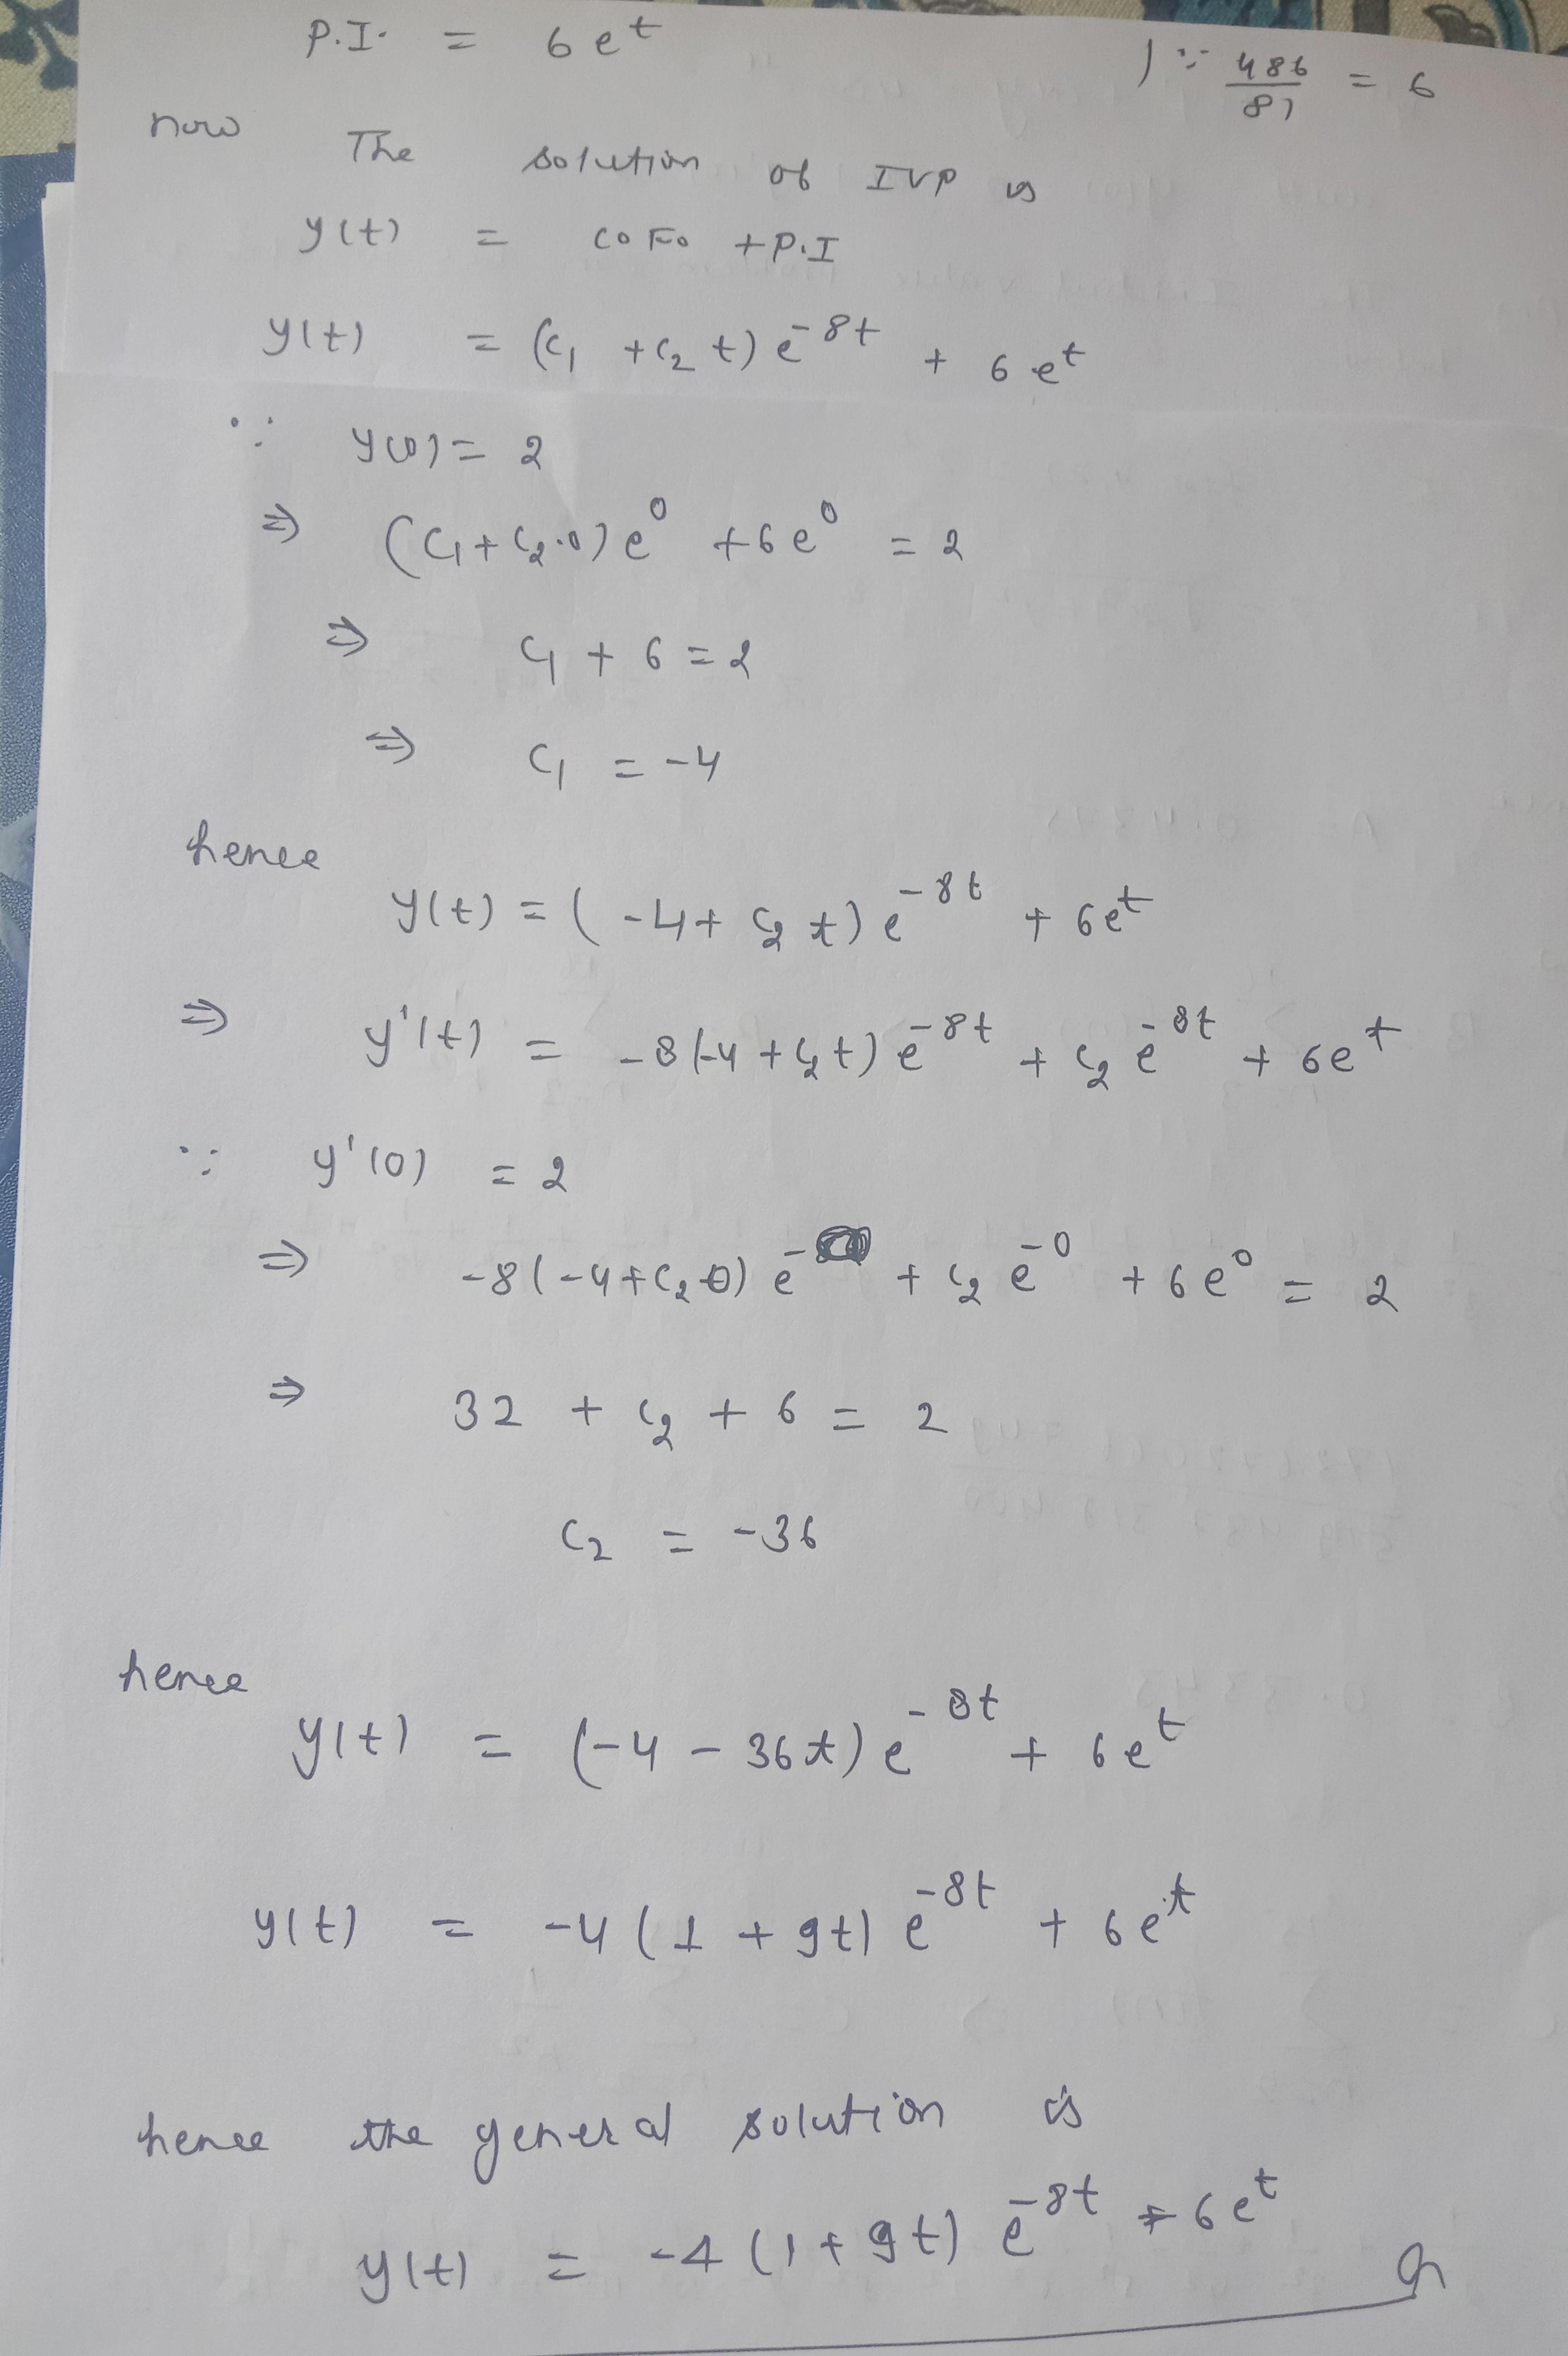 P.I. = 6 e^t ) ∵ 486/81 = 6
now The solution of IVP is
y(t) = C.F. + P.I
y(t) = (c₁ + c₂ t) e^-8t + 6 e^t
∵ y(0) = 2
⇒ (c₁ + c₂.0) e^0 + 6 e^0 = 2
⇒ c₁ + 6 = 2
⇒ c₁ = -4
hence
y(t) = ( -4 + c₂ t) e^-8t + 6e^t
⇒ y'(t) = -8(-4 + c₂t) e^-8t + c₂ e^-8t + 6e^t
∵ y'(0) = 2
⇒ -8(-4 + c₂ 0) e^- + c₂ e^-0 + 6e^0 = 2
⇒ 32 + c₂ + 6 = 2
c₂ = -36
hence
y(t) = (-4 - 36t) e^-8t + 6e^t
y(t) = -4 ( 1 + 9t) e^-8t + 6 e^t
hence the general solution is
y(t) = -4 (1 + 9t) e^-8t + 6 e^t